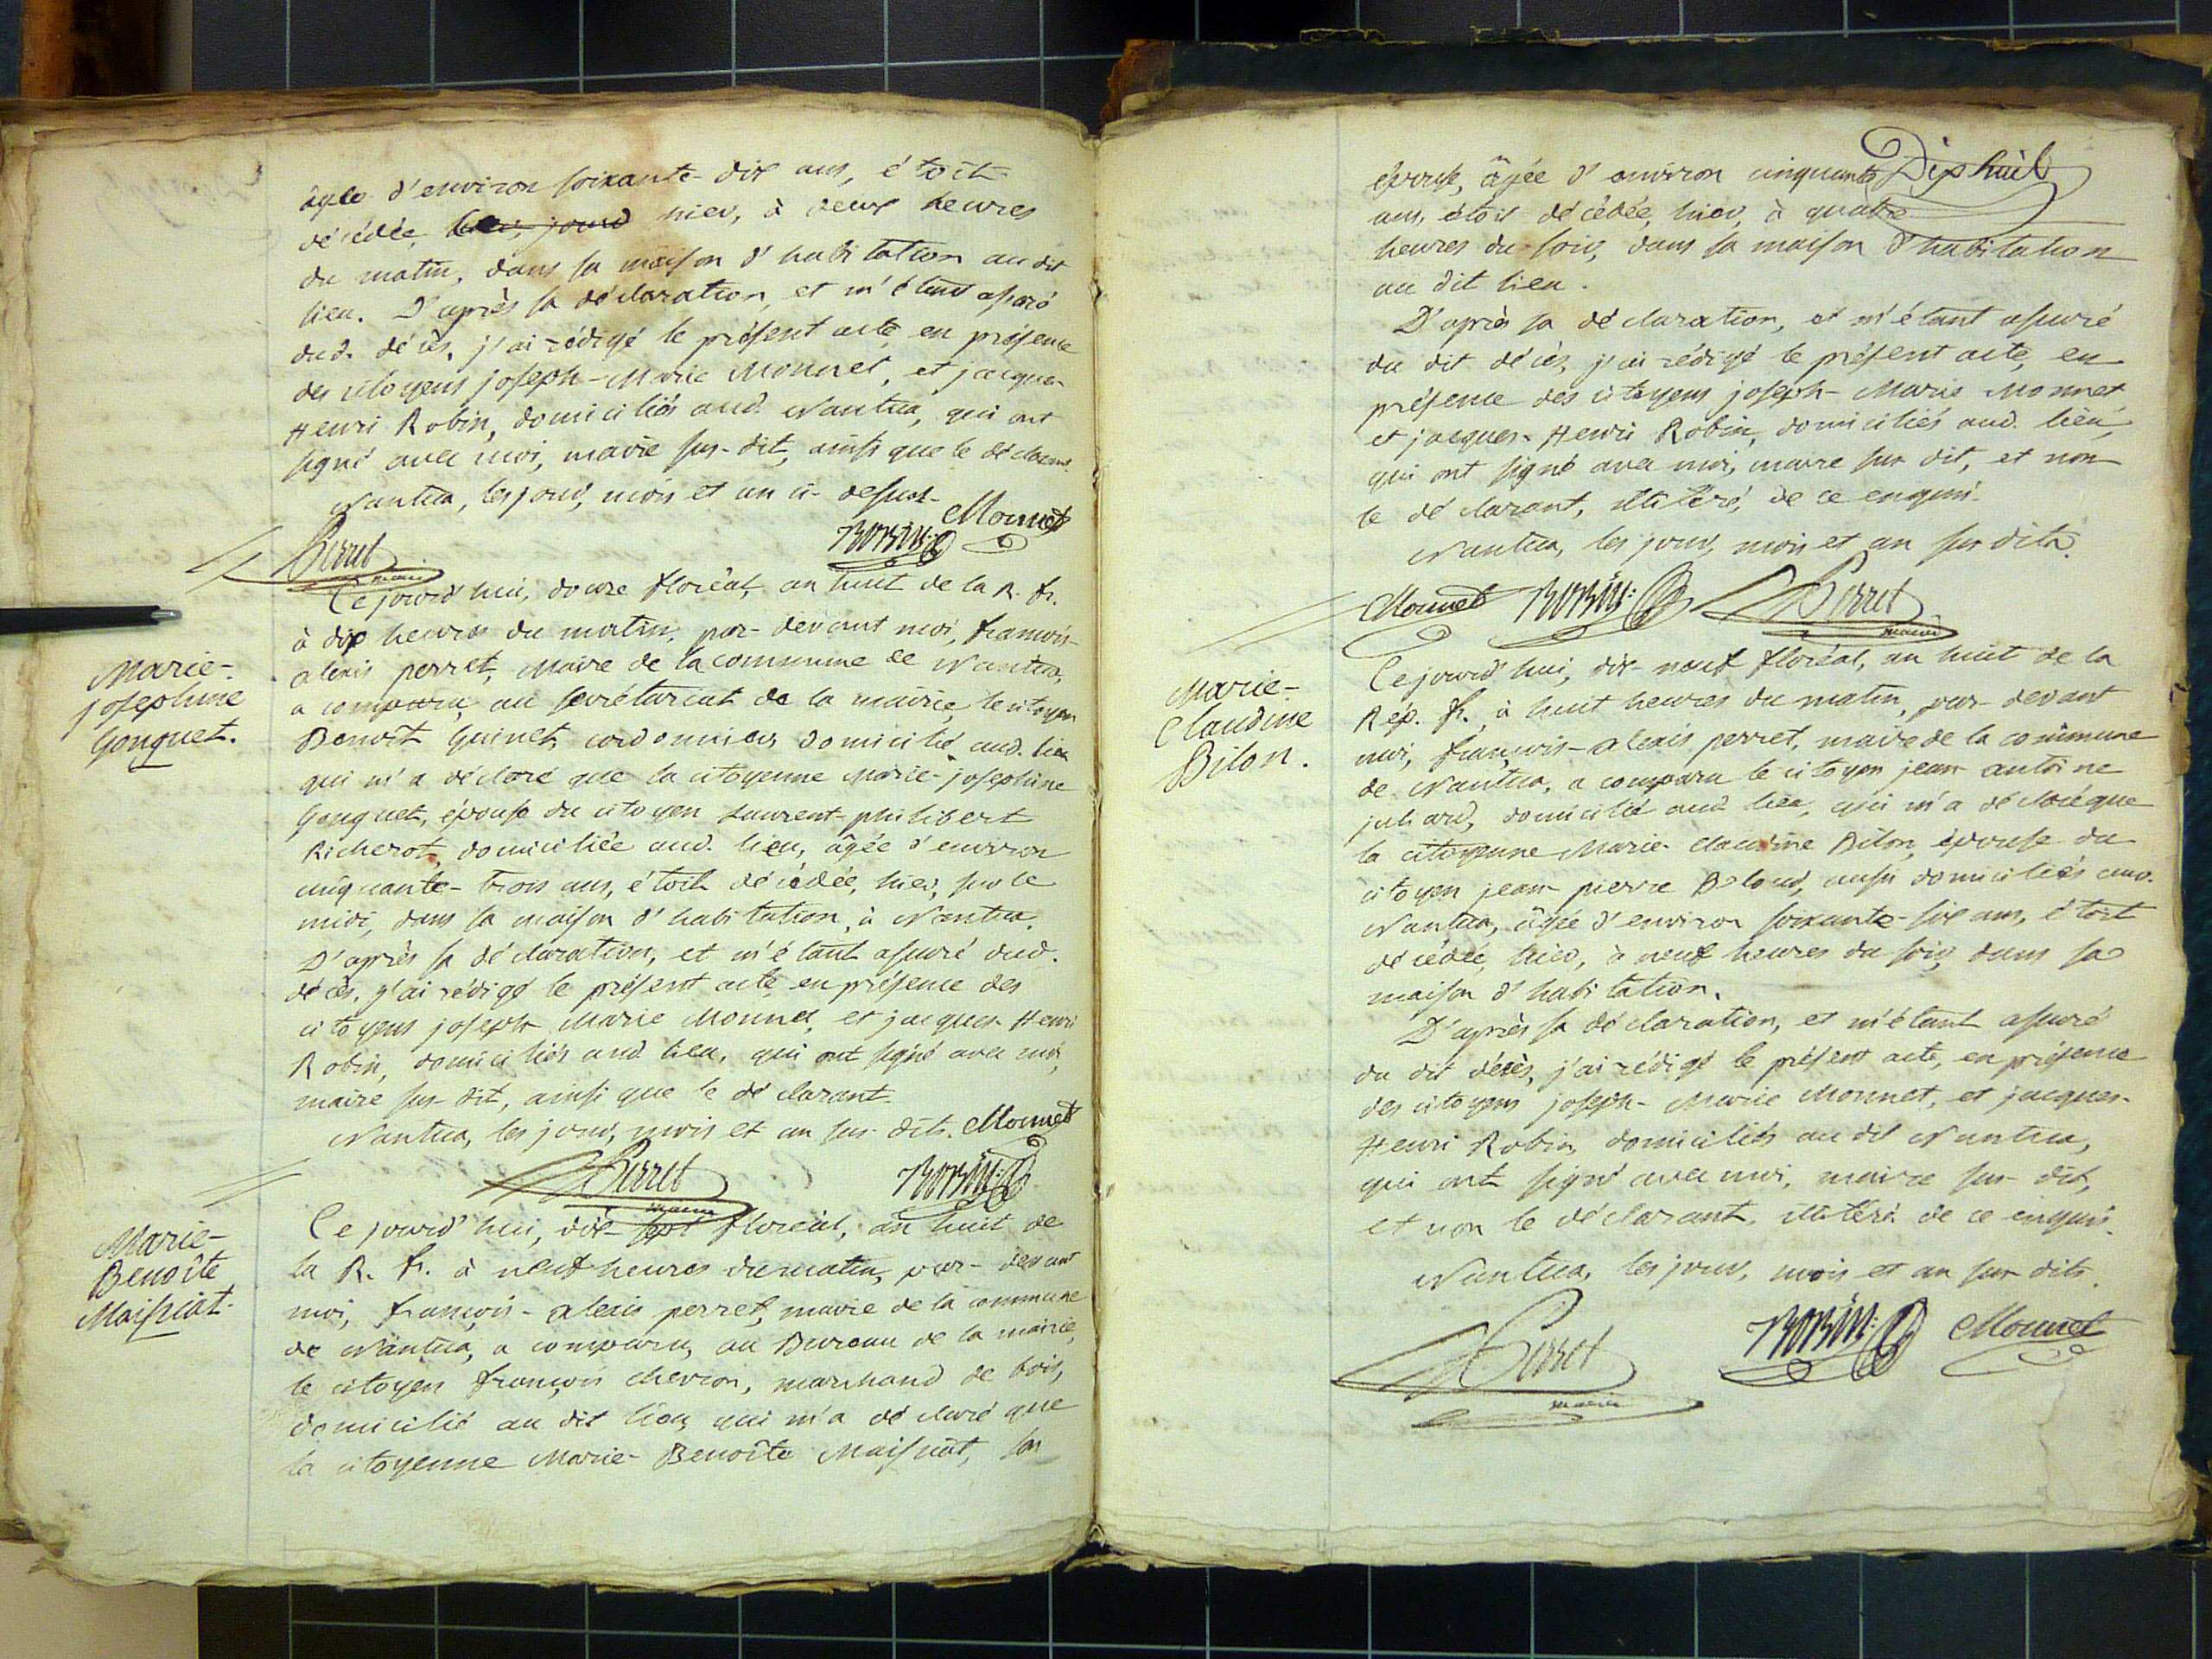 âgée d'environ soixante-dix ans, étoit
décédée, hier, à deux heures
du matin, dans sa maison d'habitation au dit
lieu. D'après sa déclaration, et m'étant assuré
dud. décès, j'ai rédigé le présent acte, en présence
des citoyens joseph-Marie Monnet, et jacques
Henri Robin, domiciliés aud. Nantua, qui ont
signé avec moi, maire sus-dit, ainsi que le déclarant.
Nantua, les jour, mois et an ci-dessus.
Perret Robin Monnet
maire
Ce jourd'hui, douze floréal, an huit de la R. fr.
à dix heures du matin, par-devant moi, françois-
alexis perret, Maire de la commune de Nantua,
a comparu, au secrétariat de la mairie, le citoyen
Benoît Guinet, cordonnier, domicilié aud. lieu
qui m'a déclaré que la citoyenne Marie-josephine
Gonguet, épouse du citoyen Laurent-philibert
Richerot, domiciliée aud. lieu, âgée d'environ
cinquante-trois ans, étoit décédée, hier, sur le
midi, dans sa maison d'habitation, à Nantua.
D'après sa déclaration, et m'étant assuré dud.
décès, j'ai rédigé le présent acte, en présence des
citoyens joseph Marie Monnet, et jacques-Henri
Robin, domiciliés aud. lieu, qui ont signé avec moi,
maire sus-dit, ainsi que le déclarant.
Nantua, les jour, mois et an sus-dits. Monnet
Perret Robin
maire
Marie-
josephine
Gonguet.
Ce jourd'hui, dix-sept floréal, an huit de
la R. fr. à neuf heures du matin, par-devant
moi, françois-alexis perret, maire de la commune
de Nantua, a comparu, au Bureau de la mairie,
le citoyen françois chevron, marchand de bois,
domicilié au dit lieu, qui m'a déclaré que
la citoyenne Marie-Benoîte Maissiat, son
Marie-
Benoîte
Maissiat.
Dix huit
épouse, âgée d'environ cinquante
ans, étoit décédée, hier, à quatre
heures du soir, dans sa maison d'habitation
au dit lieu.
D'après sa déclaration, et m'étant assuré
du dit décès, j'ai rédigé le présent acte, en
présence des citoyens joseph-Marie Monnet
et jacques-Henri Robin, domiciliés aud. lieu,
qui ont signé avec moi, maire sus dit, et non
le déclarant, illitéré, de ce enquis.
Nantua, les jour, mois et an sus dits.
Monnet Robin Perret
maire
Marie-
Claudine
Bilon.
Ce jourd'hui, dix-neuf floréal, an huit de la
Rép. fr., à huit heures du matin, par-devant
moi, françois-alexis perret, maire de la commune
de Nantua, a comparu le citoyen jean antoine
juliard, domicilié aud. lieu, qui m'a déclaré que
la citoyenne Marie-claudine Bilon, épouse du
citoyen jean pierre aussi domiciliés aud.
Nantua, âgée d'environ soixante-six ans, étoit
décédée, hier, à neuf heures du soir, dans sa
maison d'habitation.
D'après sa déclaration, et m'étant assuré
du dit décès, j'ai rédigé le présent acte, en présence
des citoyens joseph-Marie Monnet, et jacques-
Henri Robin, domiciliés au dit Nantua,
qui ont signé avec moi, maire sus-dit,
et non le déclarant, illitéré de ce enquis.
Nantua, les jour, mois et an sus dits.
Perret Robin Monnet
maire